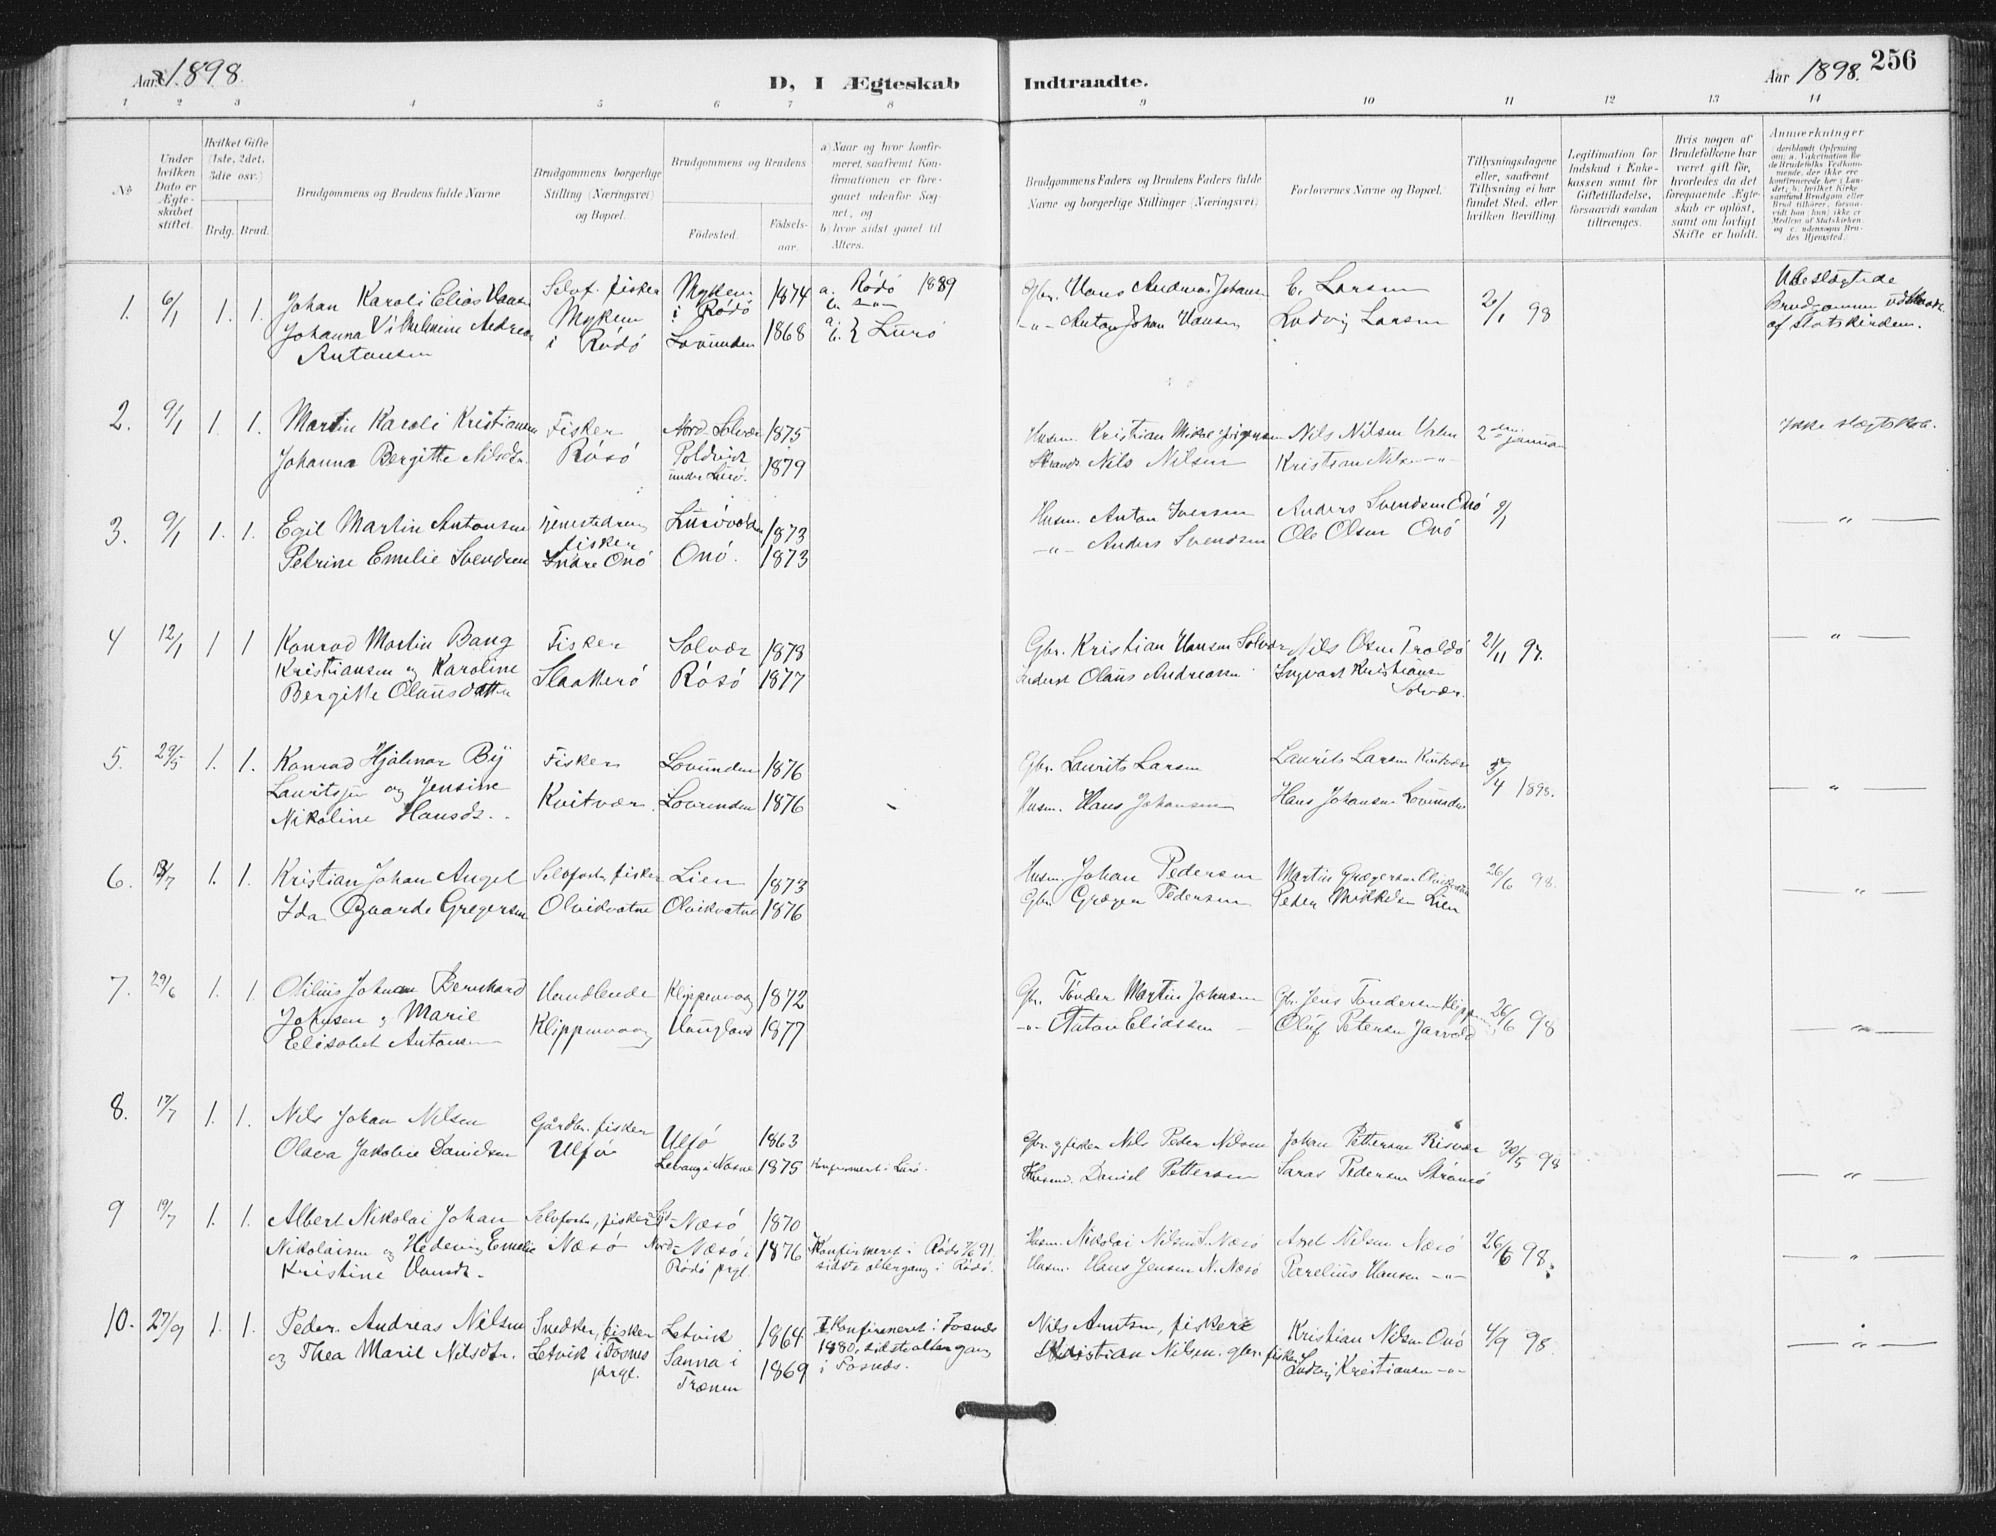 Aar 1898.
D, I Ægteskab
Indtraadte.
Aar 1898.
256
1 2 3 4 5 6 7 8 9 10 11 12 13 14
No
Under hvilken Dato er Ægteskabet stiftet.
Hvilket Gifte (1ste, 2det, 3die osv.)
Brdg. Brud.
Brudgommens og Brudens fulde Navne
Brudgommens borgerlige Stilling (Næringsvei) og Bopæl.
Brudgommens og Brudens
Fødested.
Fødselsaar.
a) Naar og hvor konfirmeret, saafremt Konfirmationen er foregaaet udenfor Sognet, og
b) hvor sidst gaaet til Alters.
Brudgommens Faders og Brudens Faders fulde Navne og borgerlige Stillinger (Næringsvei)
Forlovernes Navne og Bopæl.
Tillysningsdagene eller, saafremt Tillysning ei har fundet Sted, efter hvilken Bevilling.
Legitimation for Indskud i Enkekassen samt for Giftetilladelse, forsaavidt saadan tiltrænges.
Hvis nogen af Brudefolkene har været gift før, hvorledes da det foregaaende Ægteskab er opløst, samt om lovligt Skifte er holdt.
Anmærkninger
(deriblandt Oplysning om: a. Vakcination for de Brudefolks Vedkommende, der ikke ere konfirmerede her i Landet; b. hvilket Kirkesamfund Brudgom eller Brud tilhører, forsaavidt han (hun) ikke er Medlem af Statskirken, og c. udensogns Brudes Hjemsted.)
1. 6/1 1. 1. Johan Karoli Elias Hansen Selvf. fisker Myken 1874 a. Rødø 1889 Gbr. Hans Andreas Johansen E. Larsen 2/1 98 Ubeslægtede
Johanna Vilhelmine Andrea Myken i Rødø 1868 Lurø -"- Anton Johan Hansen Ludvig Larsen Brudgommen
Antonsen i Rødø Lovunden af Statskirken.
2. 9/1 1. 1. Martin Karoli Kristiansen Fisker Nord-Solvær 1875 Husm. Kristian Mikal Jørgensen Nils Nilsen 2 januar Ikke slægtskab.
Johanna Bergitte Nilsdtr. Røsø 1879 Strands. Nils Nilsen Kristian Nilsen -"-
under Lurø.
3. 9/1 1. 1. Egil Martin Antonsen 1873 Husm. Anton Iversen Anders Svendsen Onø 2/1 — " —
Petrine Emelie Svendsen fisker Indre Onø Onø. 1873 -"- Anders Svendsen Ole Olsen Onø
4 12/1 1 1 Konrad Martin Bang Fisker Solvær 1878 Gbr. Kristian Hansen Solvær Nils Olsen Troldø 21/11 97. — " —
Kristiansen og Karoline Slaatterø Røsø 1877 Olaus Andreassen Ingvart Kristiansen
Bergitte Olausdatter Solvær.
5. 29/5 1. 1. Konrad Hjalmar By Fisker Lovunden 1876 Gbr. Laurits Larsen Laurits Larsen Kvitvær 3/4 1898. — " —
Lauritsen og Jensine Kvitvær. Lovunden 1876 Husm. Hans Johansen Hans Johansen Lovunden
Nikoline Hansdt.
6. 1. 1. Kristian Johan Angel Selvforh. fisker Lien 1873 Husm. Johan Pedersen Martin Grægersen Olvikvatne 26/6 98. — " —
Ida Gregersen Olvikvatne Olvikvatne 1876 Gbr. Græger Pedersen Peder Mikkelsen Lien
7. 29/6 1. 1. Otilius Johan Bernhard Handlende Klippenvaag 1872 Gbr. Tønder Martin Johnsen Gbr. Jens Tondersen 26/6 98 — " —
Johnsen og Marie Klippenvaag Haugland 1877 -"- Anton Eliassen Oluf Petersen
Elisabet Antonsen
8. 17/7 1. 1. Nils Johan Nilsen Gårdbr. fisker Ulfø 1863 Gbr. og fisker Nils Peder Nilsen Johan Pettersen Risvær 30/5 98 — " —
Olava Jakobie Danielsen Ulfø Levang i Næsne 1875 Konfirmert i Lurø. Husmd. Daniel Pettersen Saras Pedersen Strømø
9 19/7 1. 1. Albert Nikolai Johan Selvforh, fisker Syd-Næsø 1870 Husm. Nikolai Nilsen S. Næsø Axel Nilsen Næsø 26/6 98. — " —
Nikolaisen og Hedevig Emelie Næsø Nord-Næsø i 1876 Konfirmeret i Rødø 91 Husm. Hans Jensen N. Næsø Parelius Hansen -"-
Kristine Hansdt. Rødø prgl. sidste altergang i Rødø.
10. 27/9 1. 1. Peder Andreas Nilsen Snedker, fisker Letvik 1864 Konfirmeret i Fosnes Nils Arntsen, fisker Kristian Nilsen Onø 4/9 98. — " —
og Thea Marie Nilsdtr. Letvik i Fosnes prgl. Sanna i Trænen 1869 1880, sidste altergang i Fosnes. Kristian Nilsen, gbr. fisker Ludvig Kristiansen -"-